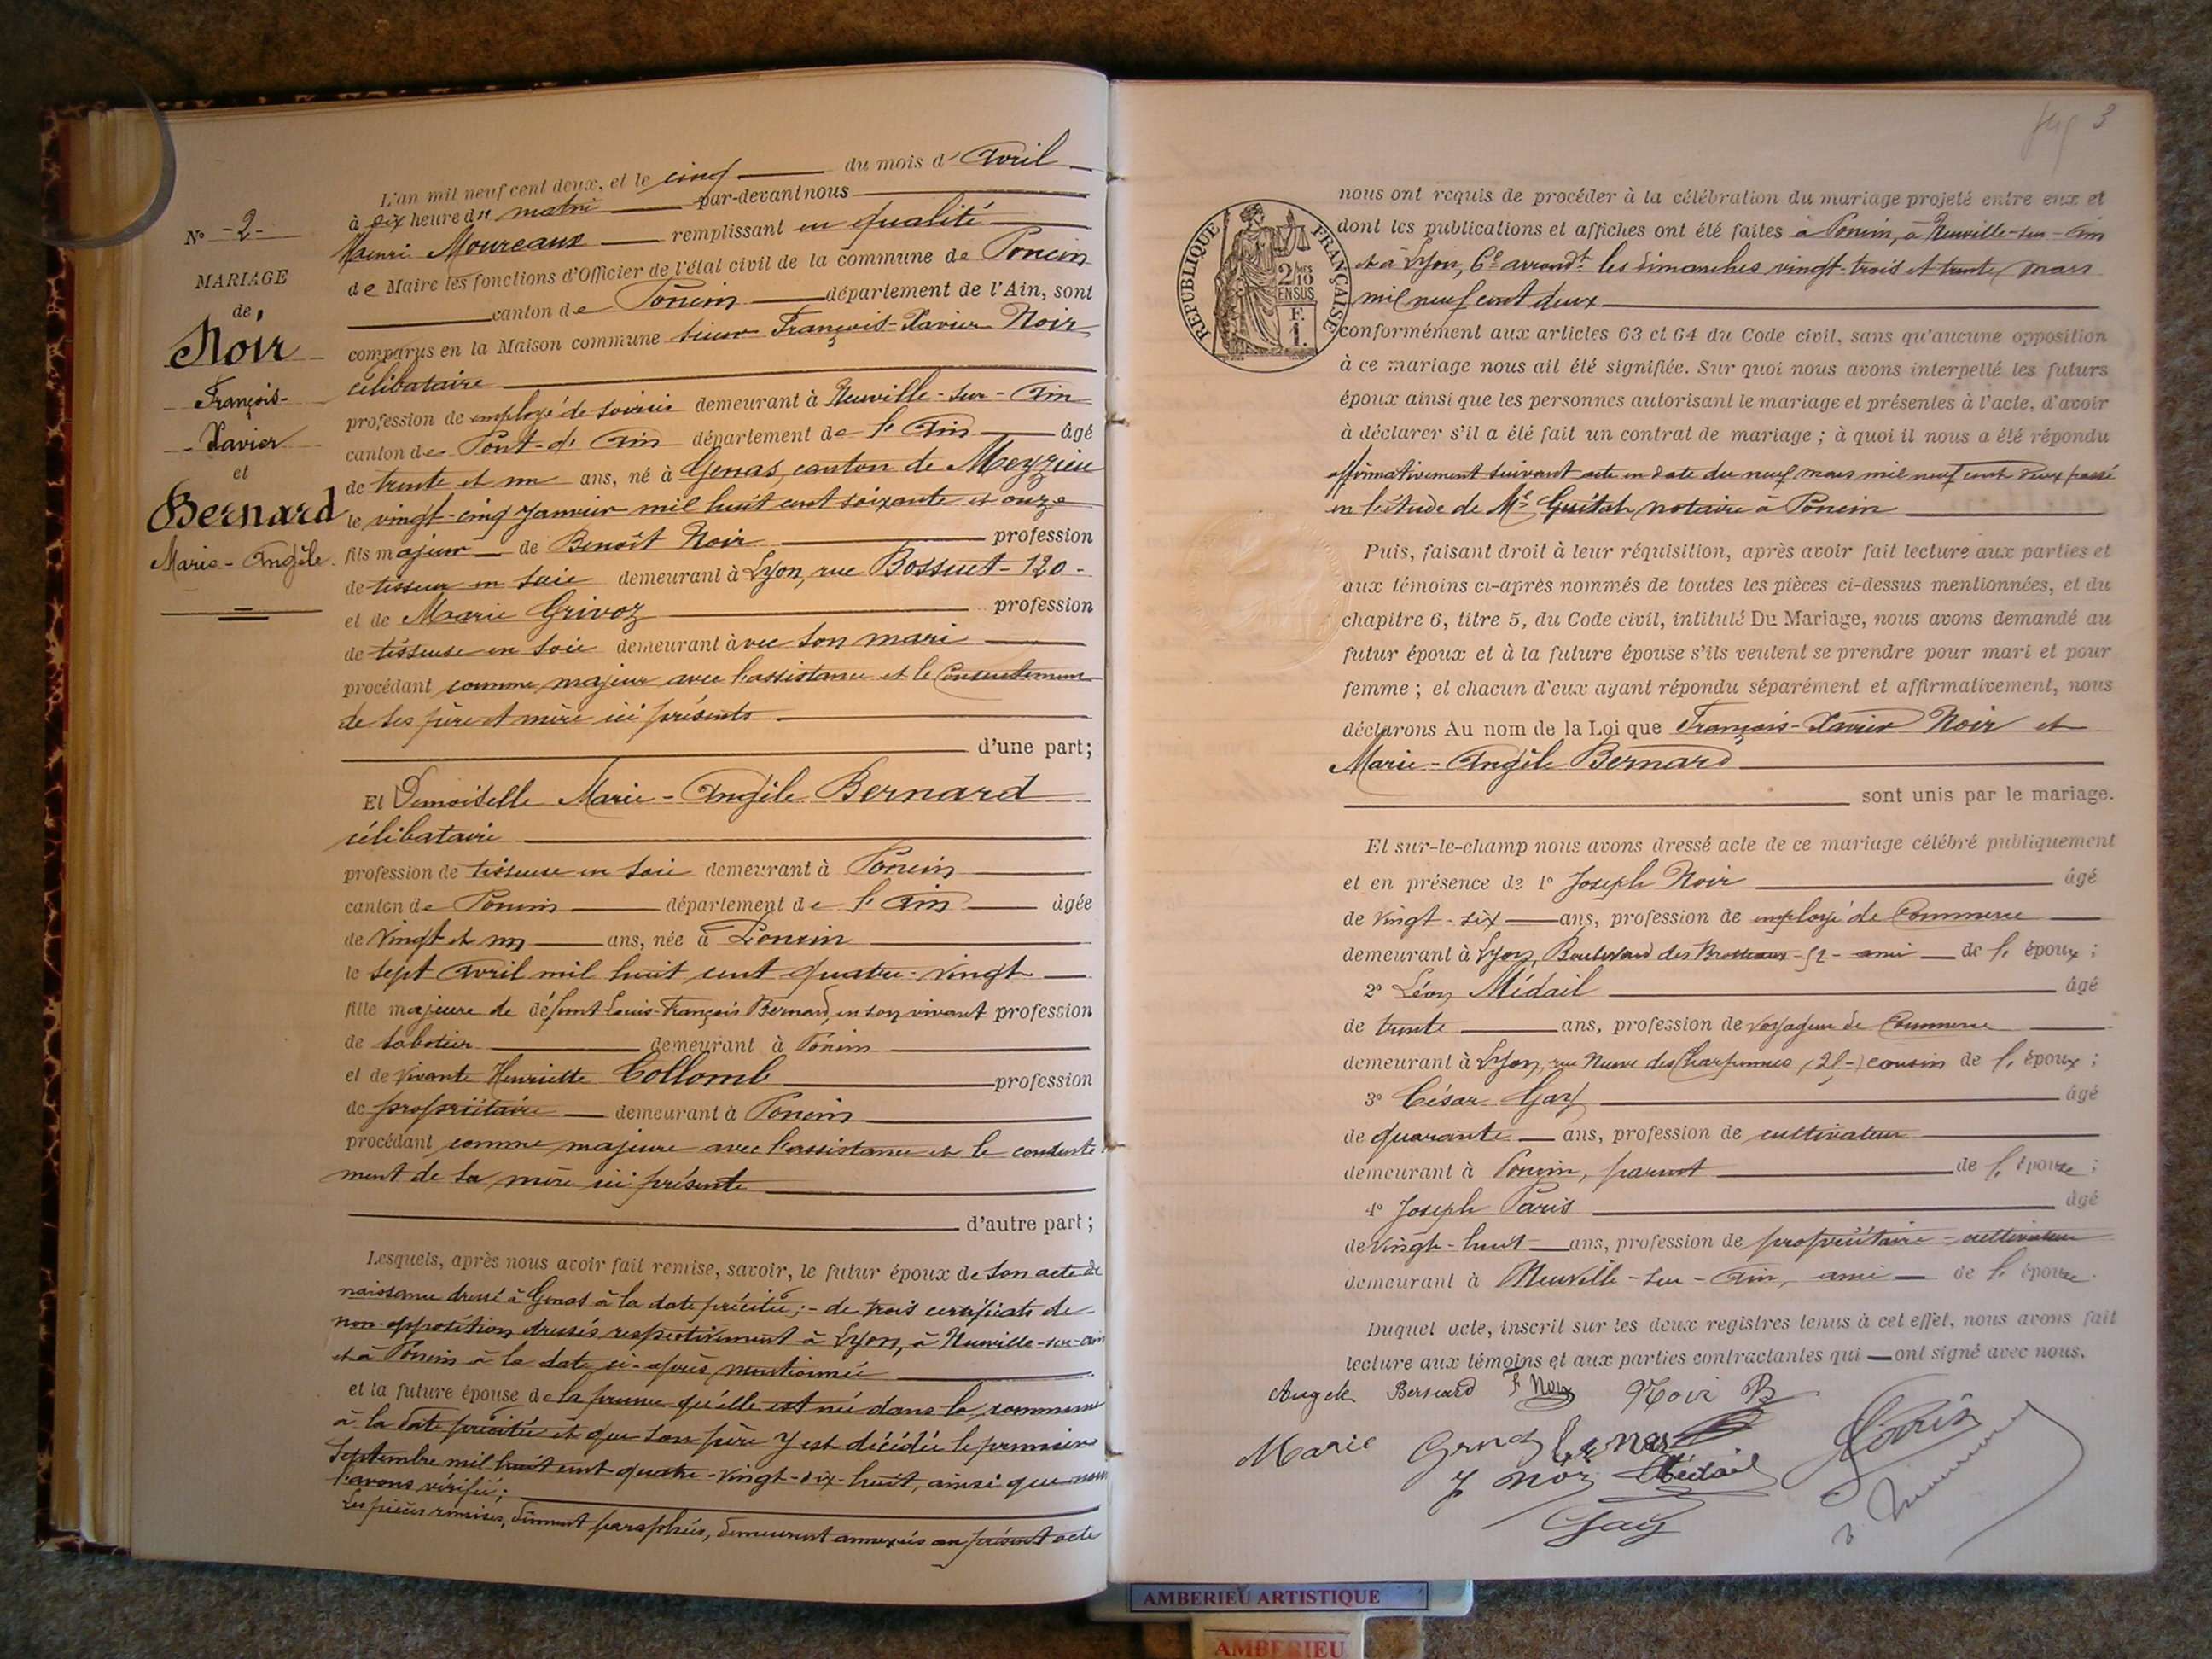 N° -2-
MARIAGE
de
Noir
François-
-Xavier
et
Bernard
Marie-Angèle.
L'an mil neuf cent deux, et le cinq du mois d'Avril
à dix heure du matin par-devant nous
Henri Moureaux remplissant en qualité
de Maire les fonctions d'Officier de l'état civil de la commune de Poncin
canton de Poncin département de l'Ain, sont
comparus en la Maison commune sieur François-Xavier Noir
célibataire
profession de employé de soierie demeurant à Neuville-sur-Ain
canton de Pont-d'Ain département de l'Ain âgé
de trente et un ans, né à Genas, canton de Meyzieu
le vingt-cinq Janvier mil huit cent soixante et onze
fils majeur de Benoît Noir profession
de tisseur en soie demeurant à Lyon, rue Bossuet-120-
et de Marie Grivoz profession
de tisseuse en soie demeurant avec son mari
procédant comme majeur avec l'assistance et le consentement
de ses père et mère ici présents
d'une part;
Et Demoiselle Marie-Angèle Bernard
célibataire
profession de tisseuse en soie demeurant à Poncin
canton de Poncin département de l'Ain âgée
de vingt et un ans, née à Poncin
le sept Avril mil huit cent quatre-vingt
fille majeure de défunt Louis-François Bernard, en son vivant profession
de sabotier demeurant à Poncin
et de vivante Henriette Collomb profession
de propriétaire demeurant à Poncin
procédant comme majeure avec l'assistance et le consente
ment de sa mère ici présente
d'autre part;
Lesquels, après nous avoir fait remise, savoir, le futur époux de son acte de
naissance dressé à Genas à la date précitée;- de trois certificats de
non-opposition dressés respectivement à Lyon, à Neuville-sur-Ain
et à Poncin à la date ci-après mentionnée
et la future épouse de la preuve qu'elle est née dans la commune
à la date précitée et que son père y est décédé le premier
Septembre mil huit cent quatre-vingt-dix-huit, ainsi que nous
l'avons vérifié;
Les pièces remises, dûment paraphées, demeurent annexées au présent acte
3
RÉPUBLIQUE FRANÇAISE
2 10 EN SUS
F.
1.
nous ont requis de procéder à la célébration du mariage projeté entre eux et
dont les publications et affiches ont été faites à Poncin, à Neuville-sur-Ain
et à Lyon, 6e arrondt. les dimanches vingt-trois et trente mars
mil neuf cent deux
conformément aux articles 63 et 64 du Code civil, sans qu'aucune opposition
à ce mariage nous ait été signifiée. Sur quoi nous avons interpellé les futurs
époux ainsi que les personnes autorisant le mariage et présentes à l'acte, d'avoir
à déclarer s'il a été fait un contrat de mariage ; à quoi il nous a été répondu
affirmativement suivant acte en date du neuf mars mil neuf cent deux passé
en l'étude de Me Guitah notaire à Poncin
Puis, faisant droit à leur réquisition, après avoir fait lecture aux parties et
aux témoins ci-après nommés de toutes les pièces ci-dessus mentionnées, et du
chapitre 6, titre 5, du Code civil, intitulé Du Mariage, nous avons demandé au
futur époux et à la future épouse s'ils veulent se prendre pour mari et pour
femme ; et chacun d'eux ayant répondu séparément et affirmativement, nous
déclarons Au nom de la Loi que François-Xavier Noir et
Marie-Angèle Bernard
sont unis par le mariage.
Et sur-le-champ nous avons dressé acte de ce mariage célébré publiquement
et en présence de 1° Joseph Noir âgé
de vingt-six ans, profession de employé de Commerce
demeurant à Lyon, Boulevard des Brotteaux-52- ami de l'époux ;
2° Léon Médail âgé
de trente ans, profession de voyageur de Commerce
demeurant à Lyon, rue Neuve des Charpennes, (21-) cousin de l'époux ;
3° César Gay âgé
de quarante ans, profession de cultivateur
demeurant à Poncin, parent de l'épouse ;
4° Joseph Paris âgé
de vingt-huit ans, profession de propriétaire-cultivateur
demeurant à Neuville-sur-Ain, ami de l'épouse.
Duquel acte, inscrit sur les deux registres tenus à cet effet, nous avons fait
lecture aux témoins et aux parties contractantes qui ont signé avec nous.
Angele Bernard F Noir Noir B
Marie J Paris
J Noir Médail
Gay
AMBERIEU ARTISTIQUE
AMBERIEU